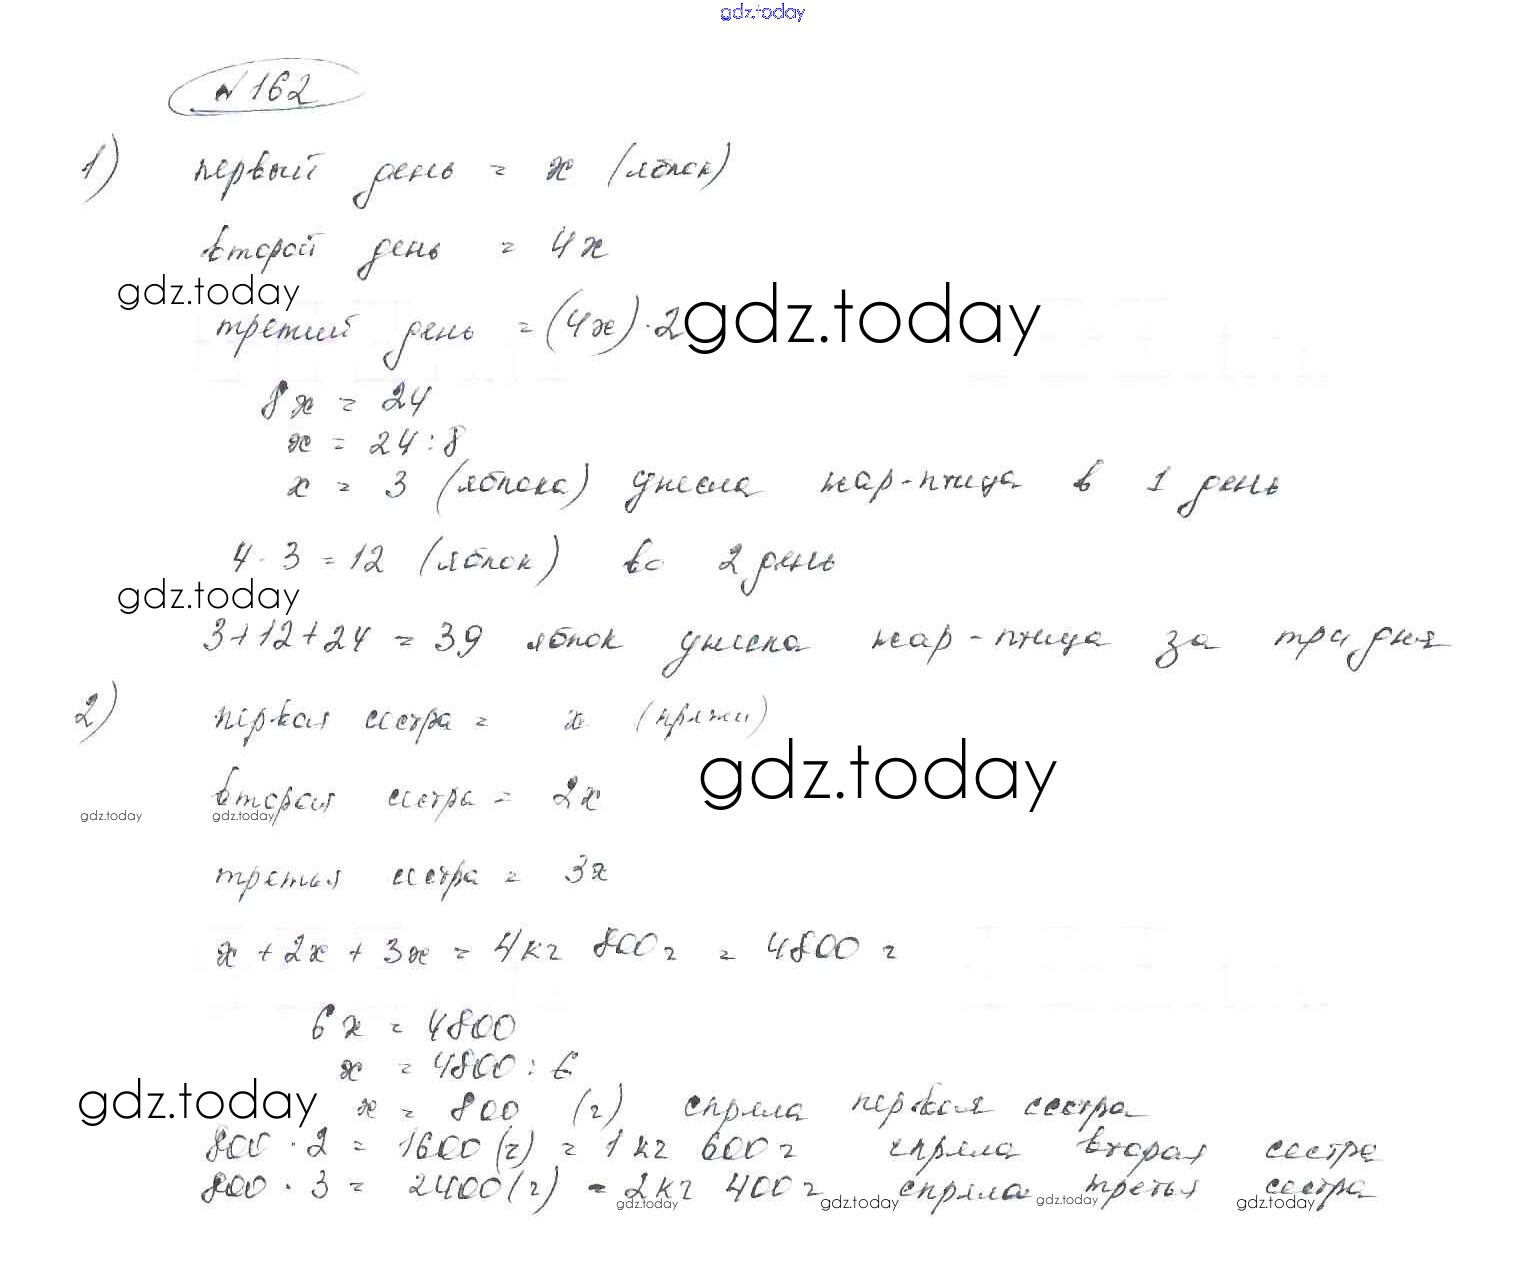 gdz.today
№162
1) первый день = x (яблок)
второй день = 4x
gdz.today
третий день = (4x)·2
gdz.today
8x = 24
x = 24:8
x = 3 (яблока) унесла жар-птица в 1 день
4·3=12 (яблок) во 2 день
gdz.today
3+12+24 = 39 яблок унесла жар-птица за три дня
2) первая сестра = x (пряжи)
gdz.today
вторая сестра = 2x
gdz.today gdz.today
третья сестра = 3x
x + 2x + 3x = 4кг 800г = 4800 г
6x = 4800
x = 4800:6
gdz.today
x = 800 (г) спряла первая сестра
800·2 = 1600(г) = 1кг 600г спряла вторая сестра
800·3 = 2400(г) = 2кг 400г спряла третья сестра
gdz.today gdz.today gdz.today gdz.today